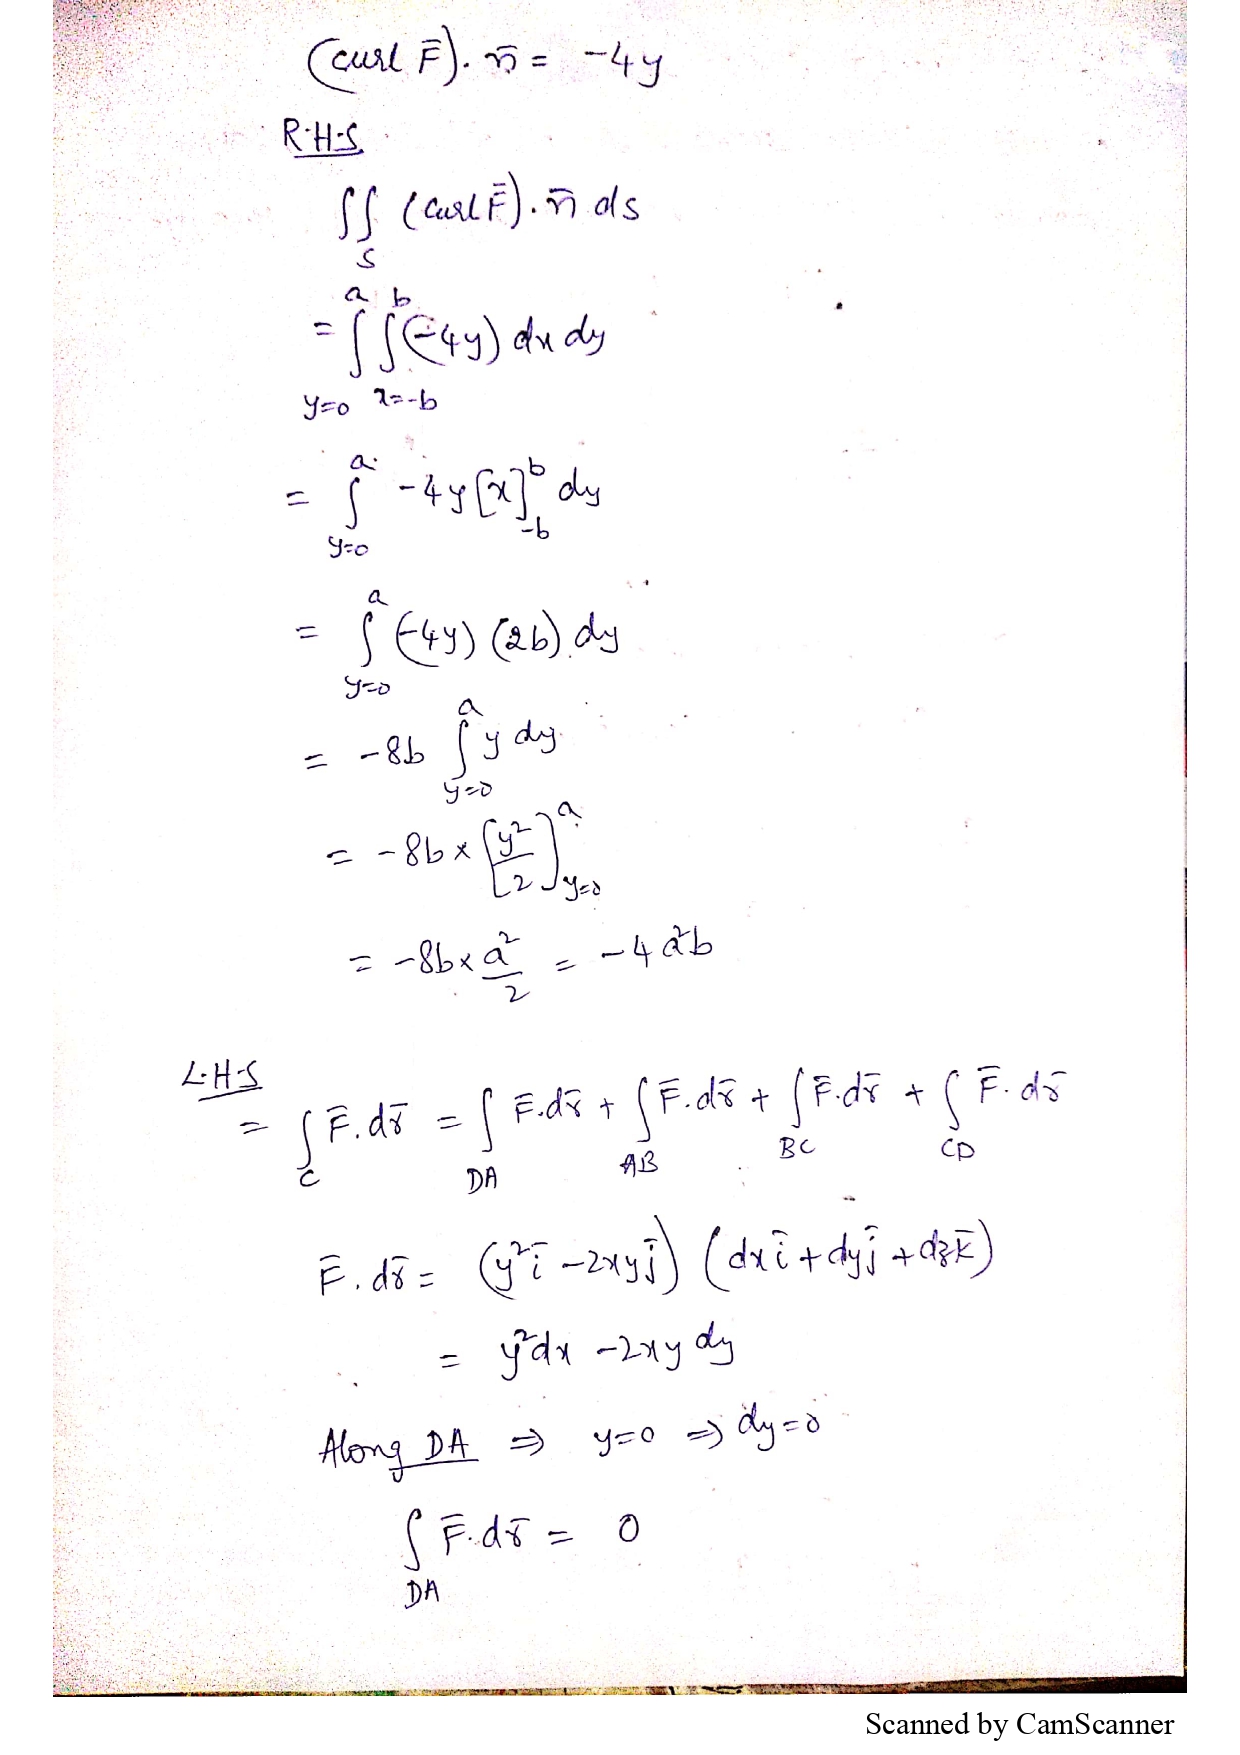 (curl F̄). n̄ = -4y
R.H.S
∬ (curl F̄). n̄ ds
S
= ∫_{y=0}^{a} ∫_{x=-b}^{b} (-4y) dx dy
= ∫_{y=0}^{a} -4y [x]_{-b}^{b} dy
= ∫_{y=0}^{a} (-4y) (2b) dy
= -8b ∫_{y=0}^{a} y dy
= -8b × [y²/2]_{y=0}^{a}
= -8b × a²/2 = -4a²b
L.H.S
= ∫_C F̄. dr̄ = ∫_{DA} F̄.dr̄ + ∫_{AB} F̄.dr̄ + ∫_{BC} F̄.dr̄ + ∫_{CD} F̄. dr̄
F̄. dr̄ = (y²ī - 2xyj̄) (dxī + dyj̄ + dzk̄)
= y²dx - 2xy dy
Along DA ⇒ y=0 ⇒ dy=0
∫_{DA} F̄.dr̄ = 0
Scanned by CamScanner